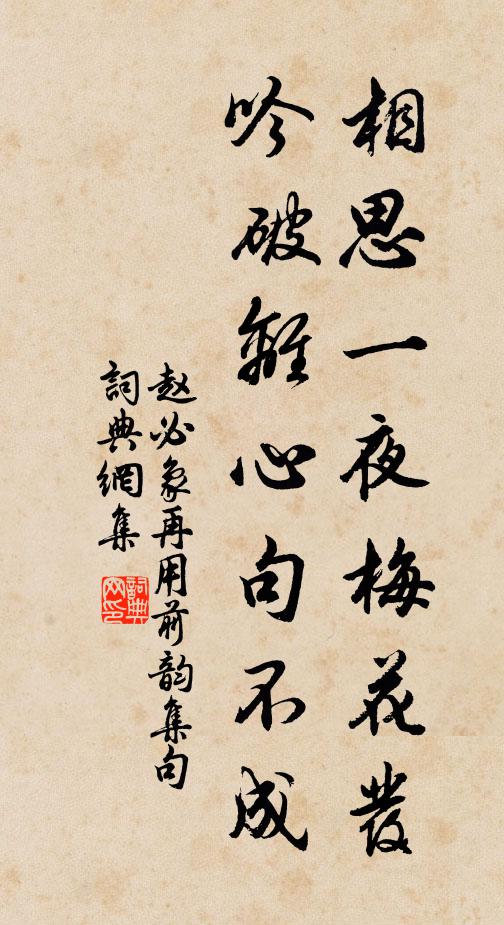 相思一夜梅花發
吟破離心句不成
赵必象再用前韵集句
詞典網集
詞典
网印